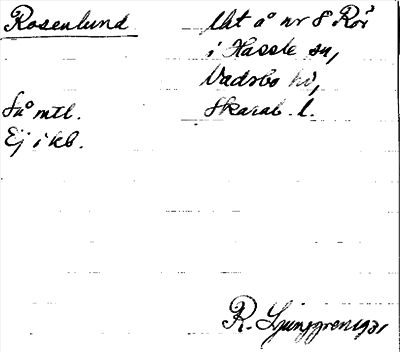 Rosenlund
Uts å nr 8 Rör
i Hassle sn,
Vadsbo hd,
Så mtl. Skarab. l.
Ej i kb.
R. Ljunggren 1931